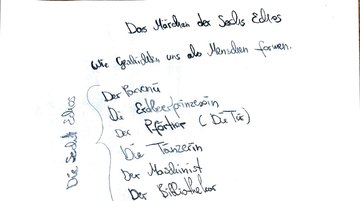 Das Märchen der Sechs Echos
Wie Geschichten uns als Menschen formen.
Die Sechs Echos
Der Barenu
Die Erdbeerprinzessin
Der Pförtner (Die Tür)
Die Tänzerin
Der Maschinist
Der Bibliothekar